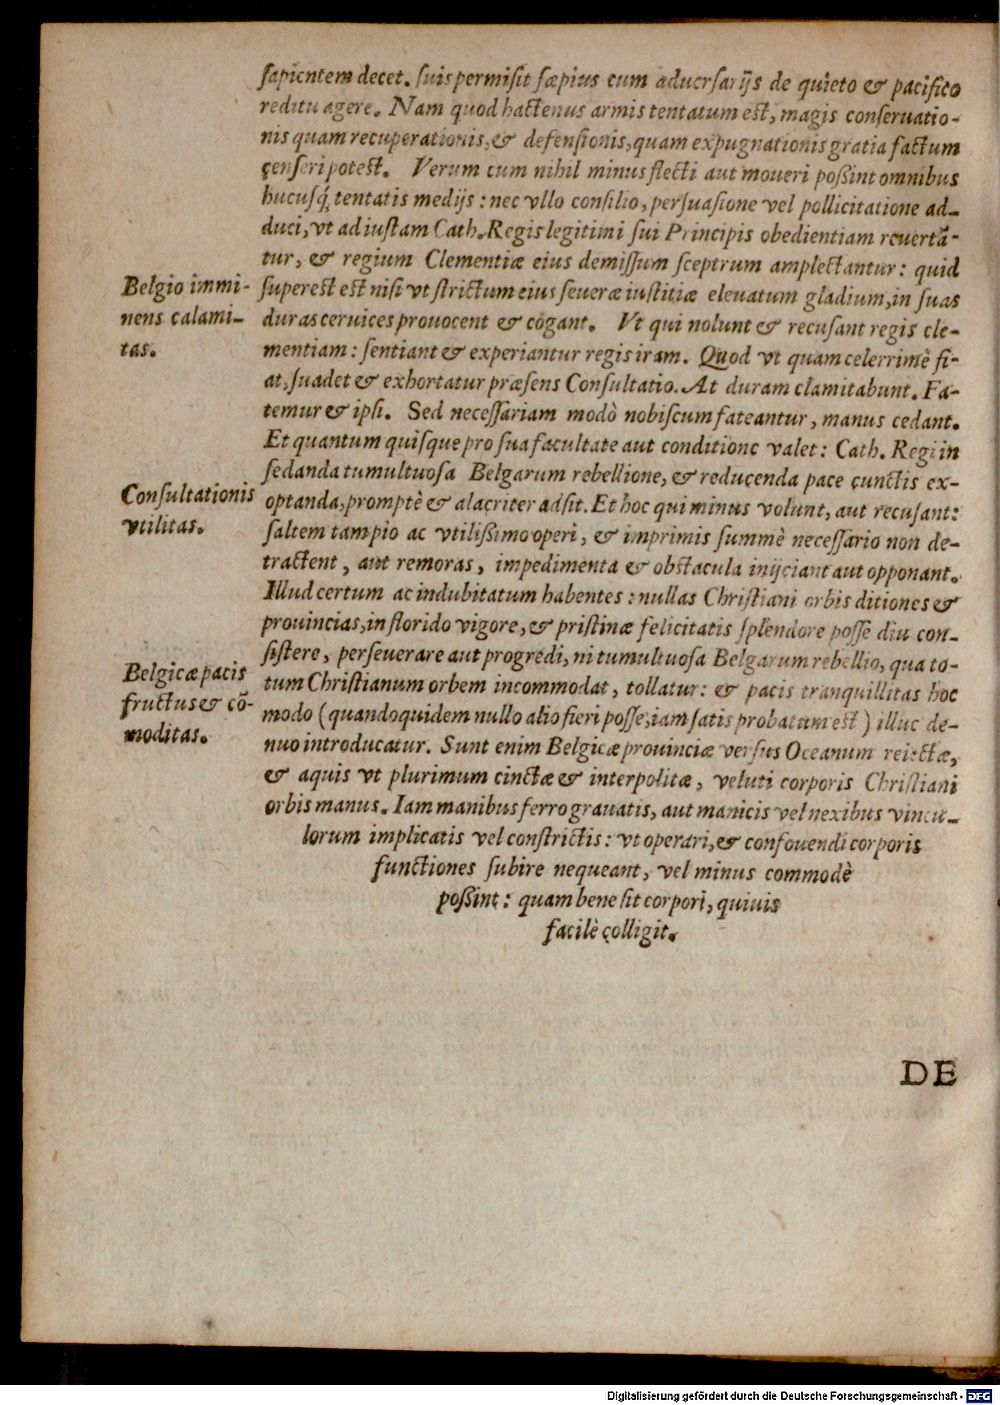 sapientem decet. suis permisit sæpius cum aduersarijs de quieto & pacifico
reditu agere. Nam quod hactenus armis tentatum est, magis conseruatio-
nis quam recuperationis, & defensionis, quam expugnationis gratia factum
censeri potest. Verum cum nihil minus flecti aut moueri possint omnibus
hucusq́; tentatis medijs : nec vllo consilio, persuasione vel pollicitatione ad-
duci, vt ad iustam Cath. Regis legitimi sui Principis obedientiam reuertã-
tur, & regium Clementiæ eius demissum sceptrum amplectantur : quid
superest est nisi vt strictum eius seueræ iustitiæ eleuatum gladium, in suas
duras ceruices prouocent & cogant. Vt qui nolunt & recusant regis cle-
mentiam : sentiant & experiantur regis iram. Quod vt quam celerrimè fi-
at, suadet & exhortatur præsens Consultatio. At duram clamitabunt. Fa-
temur & ipsi. Sed necessariam modò nobiscum fateantur, manus cedant.
Et quantum quisque pro sua facultate aut conditione valet : Cath. Regi in
sedanda tumultuosa Belgarum rebellione, & reducenda pace cunctis ex-
optanda, promptè & alacriter adsit. Et hoc qui minus volunt, aut recusant :
saltem tam pio ac vtilissimo operi, & imprimis summè necessario non de-
tractent, aut remoras, impedimenta & obstacula inijciant aut opponant.
Illud certum ac indubitatum habentes : nullas Christiani orbis ditiones &
prouincias, in florido vigore, & pristinæ felicitatis splendore posse diu con-
sistere, perseuerare aut progredi, ni tumultuosa Belgarum rebellio, qua to-
tum Christianum orbem incommodat, tollatur : & pacis tranquillitas hoc
modo (quandoquidem nullo alio fieri posse, iam satis probatum est) illuc de-
nuo introducatur. Sunt enim Belgicæ prouinciæ versus Oceanum reiectæ,
& aquis vt plurimum cinctæ & interpolitæ, veluti corporis Christiani
orbis manus. Iam manibus ferro grauatis, aut manicis vel nexibus vincu-
lorum implicatis vel constrictis : vt operari, & confouendi corporis
functiones subire nequeant, vel minus commodè
possint : quam bene sit corpori, quiuis
facilè colligit.
Belgio immi-
nens calami-
tas.
Consultationis
vtilitas.
Belgicæ pacis
fructus & cō-
moditas.
DE
Digitalisierung gefördert durch die Deutsche Forschungsgemeinschaft - DFG